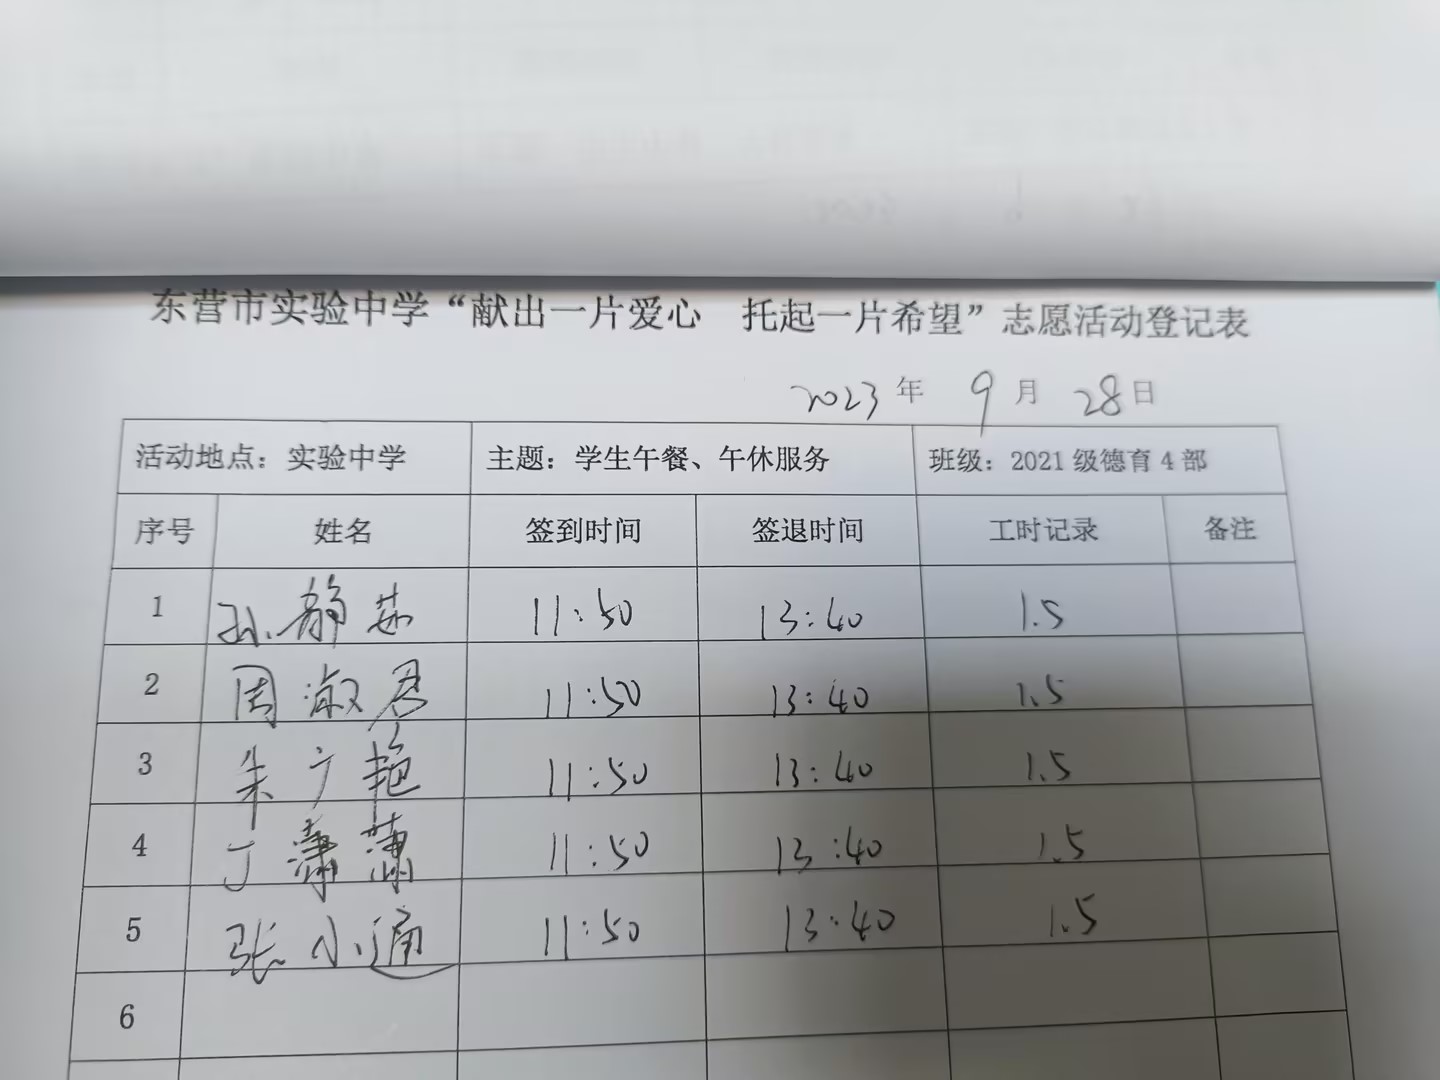 东营市实验中学“献出一片爱心 托起一片希望”志愿活动登记表
2023年 9月 28日
活动地点：实验中学 主题：学生午餐、午休服务 班级：2021级德育4部
序号 姓名 签到时间 签退时间 工时记录 备注
1 孙静茹 11:50 13:40 1.5
2 周淑君 11:50 13:40 1.5
3 朱广艳 11:50 13:40 1.5
4 丁潇潇 11:50 13:40 1.5
5 张小通 11:50 13:40 1.5
6